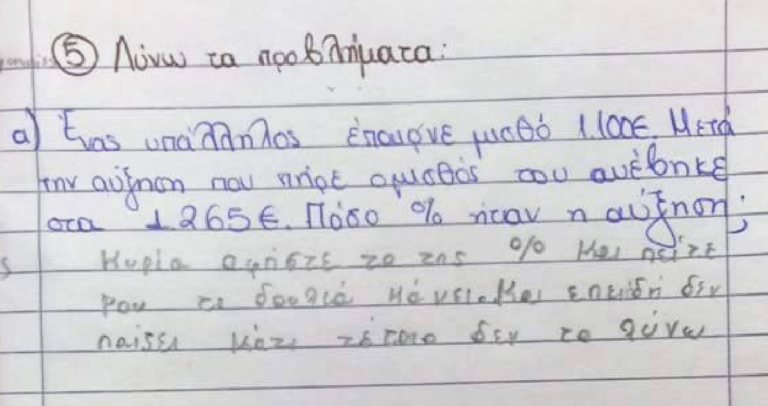 ⑤ Λύνω τα προβλήματα:
α) Ένας υπάλληλος έπαιρνε μισθό 1.100€. Μετά
την αύξηση που πήρε ο μισθός του ανέβηκε
στα 1265€. Πόσο % ήταν η αύξηση;
Κυρία αφήστε το της % και πείτε
μου τι δουλιά κάνει. Και επειδή δεν
παίζει κάτι τέτοιο δεν το λύνω